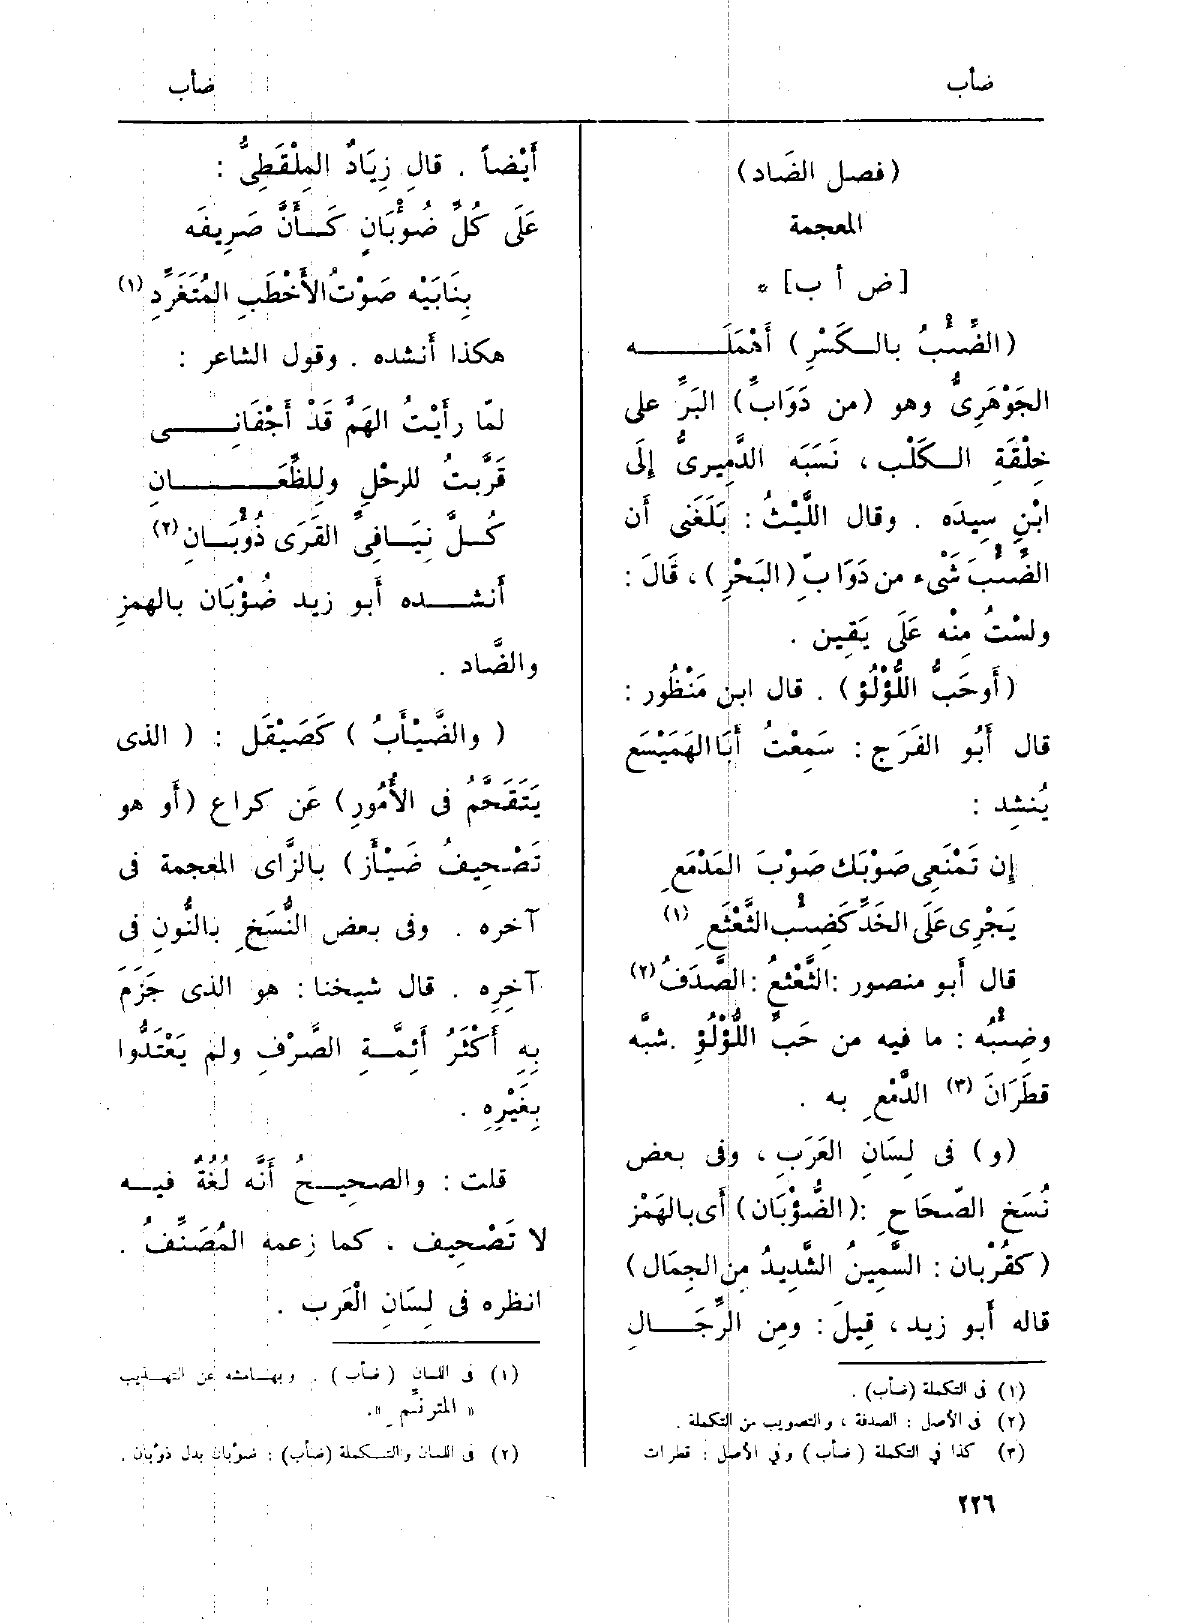 ضأب
ضأب
(فصل الضَاد)
المعجمة
[ض أ ب] *
(الضِّئْبُ بالكَسْرِ) أَهْمَلَه
الجَوْهَرِىُّ وهو (من دَوَابِّ) البَرِّ على
خِلْقَةِ الكَلْب، نَسَبَه الدَّمِيرىُّ إِلَى
ابْنِ سِيدَه . وقال اللَّيْثُ : بَلَغَنى أَن
الضِّئْبَ شَىْء من دَوَابِّ (البَحْرِ)، قَالَ :
ولسْتُ مِنْه عَلَى يَقِين .
(أَوحَبُّ اللُّؤْلُؤ) . قال ابن مَنْظُور :
قال أَبُو الفَرَج : سَمِعْتُ أَبَا الهَمَيْسَع
يُنشِد :
إِن تَمْنَعِى صَوْبَك صَوْبَ المَدْمَعِ
يَجْرِى عَلَى الخَدِّ كَضِئْب الثَّعْثَعِ (١)
قال أَبو منصور : الثَّعْثَعُ : الصَّدَفُ (٢)
وضِئْبُه : ما فيه من حَبِّ اللُّؤْلُؤِ . شبَّه
قطَرَانَ (٣) الدَّمْعِ به .
(و) فى لِسَانِ العَرَبِ، وفى بعض
نُسَخِ الصِّحَاحِ : (الضُّؤْبَان) أَى بالهَمْز
(كقُرْبان : السَّمِينُ الشَّدِيدُ مِن الجِمَال)
قاله أَبو زيد، قِيلَ : ومِن الرِّجَالِ
(١) فى التكملة (ضأب) .
(٢) فى الأصل : الصدفة ، والتصويب من التكملة .
(٣) كذا في التكملة (ضأب) وفي الأصل : قطرات
أَيْضاً . قال زِيَادٌ المِلْقَطِىُّ :
عَلَى كُلِّ ضُؤْبَانٍ كَأَنَّ صَرِيفَه
بِنَابَيْه صَوْتُ الأَخْطَبِ المُتَغَرِّدِ (١)
هكذا أَنشده . وقول الشاعر :
لمّا رأَيْتُ الهَمَّ قَدْ أَجْفَانِى
قَرَّبتُ للرحْلِ ولِلظِّعَانِ
كُلَّ نِيَافِىِّ القَرَى ذُوْبَانِ (٢)
أَنشده أَبو زيد ضُؤْبَان بالهمزِ
والضَّاد .
(والضَّيْأَبُ) كَصَيْقَل : (الذى
يَتَقَحَّمُ فى الأُمُورِ) عَن كراع (أَو هو
تَصْحِيفُ ضَيْأَز) بالزَّاى المعجمة فى
آخره . وفى بعض النُّسَخِ بالنُّونِ فى
آخِرِه . قال شيخنا : هو الذى جَزَمَ
بِهِ أَكْثَرُ أَئِمَّةِ الصَّرْفِ ولم يَعْتَدُّوا
بِغَيْرِهِ .
قلت : والصحِيحُ أَنَّه لُغَةٌ فيه
لا تَصْحِيف ، كما زعمه المُصَنِّفُ .
انظره فى لِسَانِ الْعَرب .
(١) فى اللسان (ضأب) . وبهامشه عن التهذيب
« المترنّمِ ».
(٢) فى اللسان والتكملة (ضأب) : ضؤبان بدل ذوبان .
٢٢٦